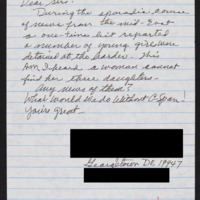 Dear Sir:
During the sporadic source
of news from the mid-East
a one-time bit reported
a number of young girls were
detained at the border. This
A.M. I heard a woman cannot
find her three daughters.
Any news of them?
What would we do without C-Span!
You're great
Georgetown DE 19947